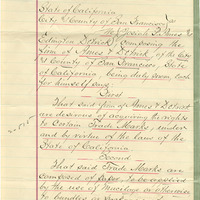 State of California
City & County of San Francisco
We Joseph D. Ames &
Detrick, composing the
firm of Ames & Detrick of the City
& County of San Francisco, State
of California, being duly sworn each
for himself says:
First
That said firm of Ames & Detrick
are desirous of acquiring the rights
to certain Trade Marks, under
and by virtue of the laws of the
State of California.
Second
That said Trade Marks are
composed of paper, to be
by the use of Mucilage or otherwise
to bundles or